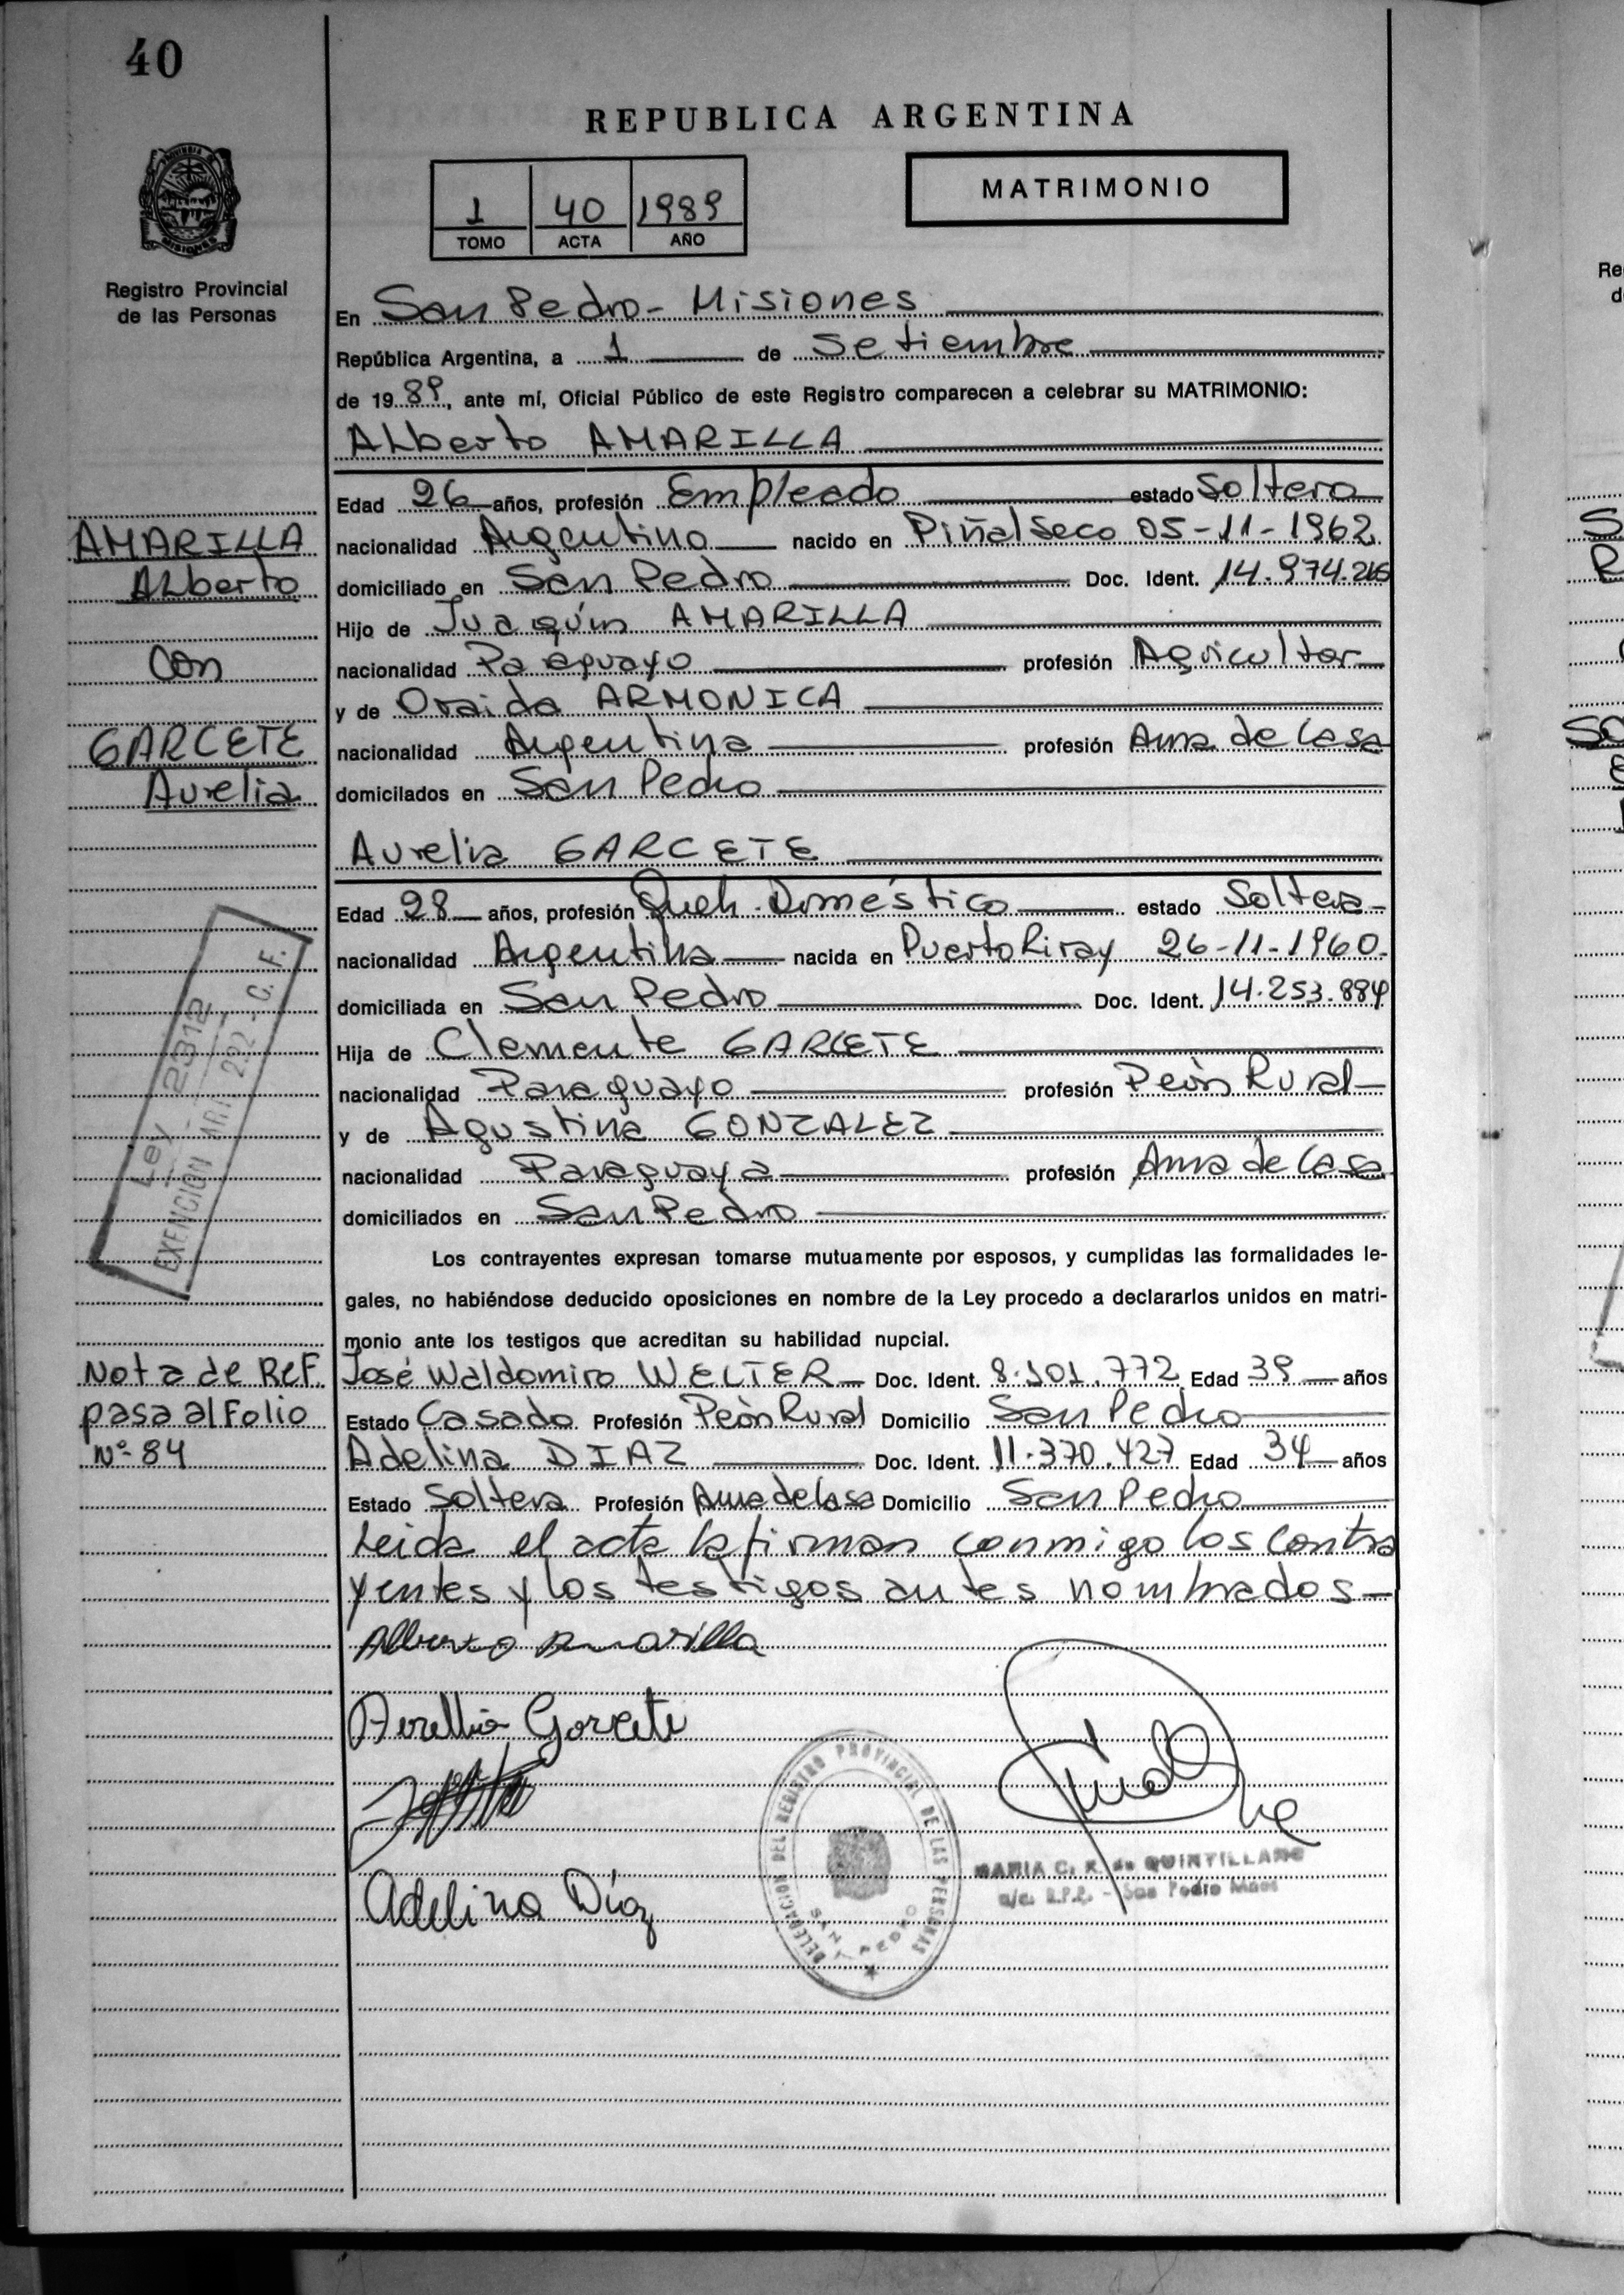 40
REPUBLICA ARGENTINA
MATRIMONIO
1 40 1989
TOMO ACTA AÑO
PROVINCIA DE
MISIONES
Registro Provincial
de las Personas
En San Pedro - Misiones
República Argentina, a 1 de Setiembre
de 1989, ante mí, Oficial Público de este Registro comparecen a celebrar su MATRIMONIO:
Alberto AMARILLA
Edad 26 años, profesión Empleado estado Soltero
nacionalidad Argentino nacido en Piñalseco 05-11-1962
domiciliado en San Pedro Doc. Ident. 14.974.216
Hijo de Juaquín AMARILLA
nacionalidad Paraguayo profesión Agricultor
y de Oraida ARMONICA
nacionalidad Argentina profesión Ama de Casa
domicilados en San Pedro
AMARILLA
Alberto
con
GARCETE
Aurelia
Aurelia GARCETE
Edad 28 años, profesión Queh. Doméstico estado Soltera
nacionalidad Argentina nacida en Puerto Piray 26-11-1960.
domiciliada en San Pedro Doc. Ident. 14.253.884
Hija de Clemente GARCETE
nacionalidad Paraguayo profesión Peón Rural
y de Agustina GONZALEZ
nacionalidad Paraguaya profesión Ama de Casa
domiciliados en San Pedro
Ley 2312
EXENCION ART. 292 - C. F.
Los contrayentes expresan tomarse mutuamente por esposos, y cumplidas las formalidades le-
gales, no habiéndose deducido oposiciones en nombre de la Ley procedo a declararlos unidos en matri-
monio ante los testigos que acreditan su habilidad nupcial.
José Waldomiro WELTER Doc. Ident. 8.101.772 Edad 39 años
Estado Casado Profesión Peón Rural Domicilio San Pedro
Adelina DIAZ Doc. Ident. 11.370.427 Edad 34 años
Estado Soltera Profesión Ama de Casa Domicilio San Pedro
Nota de Ref.
pasa al Folio
Nº 84
Leida el acta la firman conmigo los contra
yentes y los testigos antes nombrados-
Alberto Amarilla
Aurellia Garcete
Adelina Díaz
DELEGACION DEL REGISTRO PROVINCIAL DE LAS PERSONAS
SAN PEDRO
MARIA C. R. de QUINTILLANO
a/c. R.P.P. - San Pedro Mnes